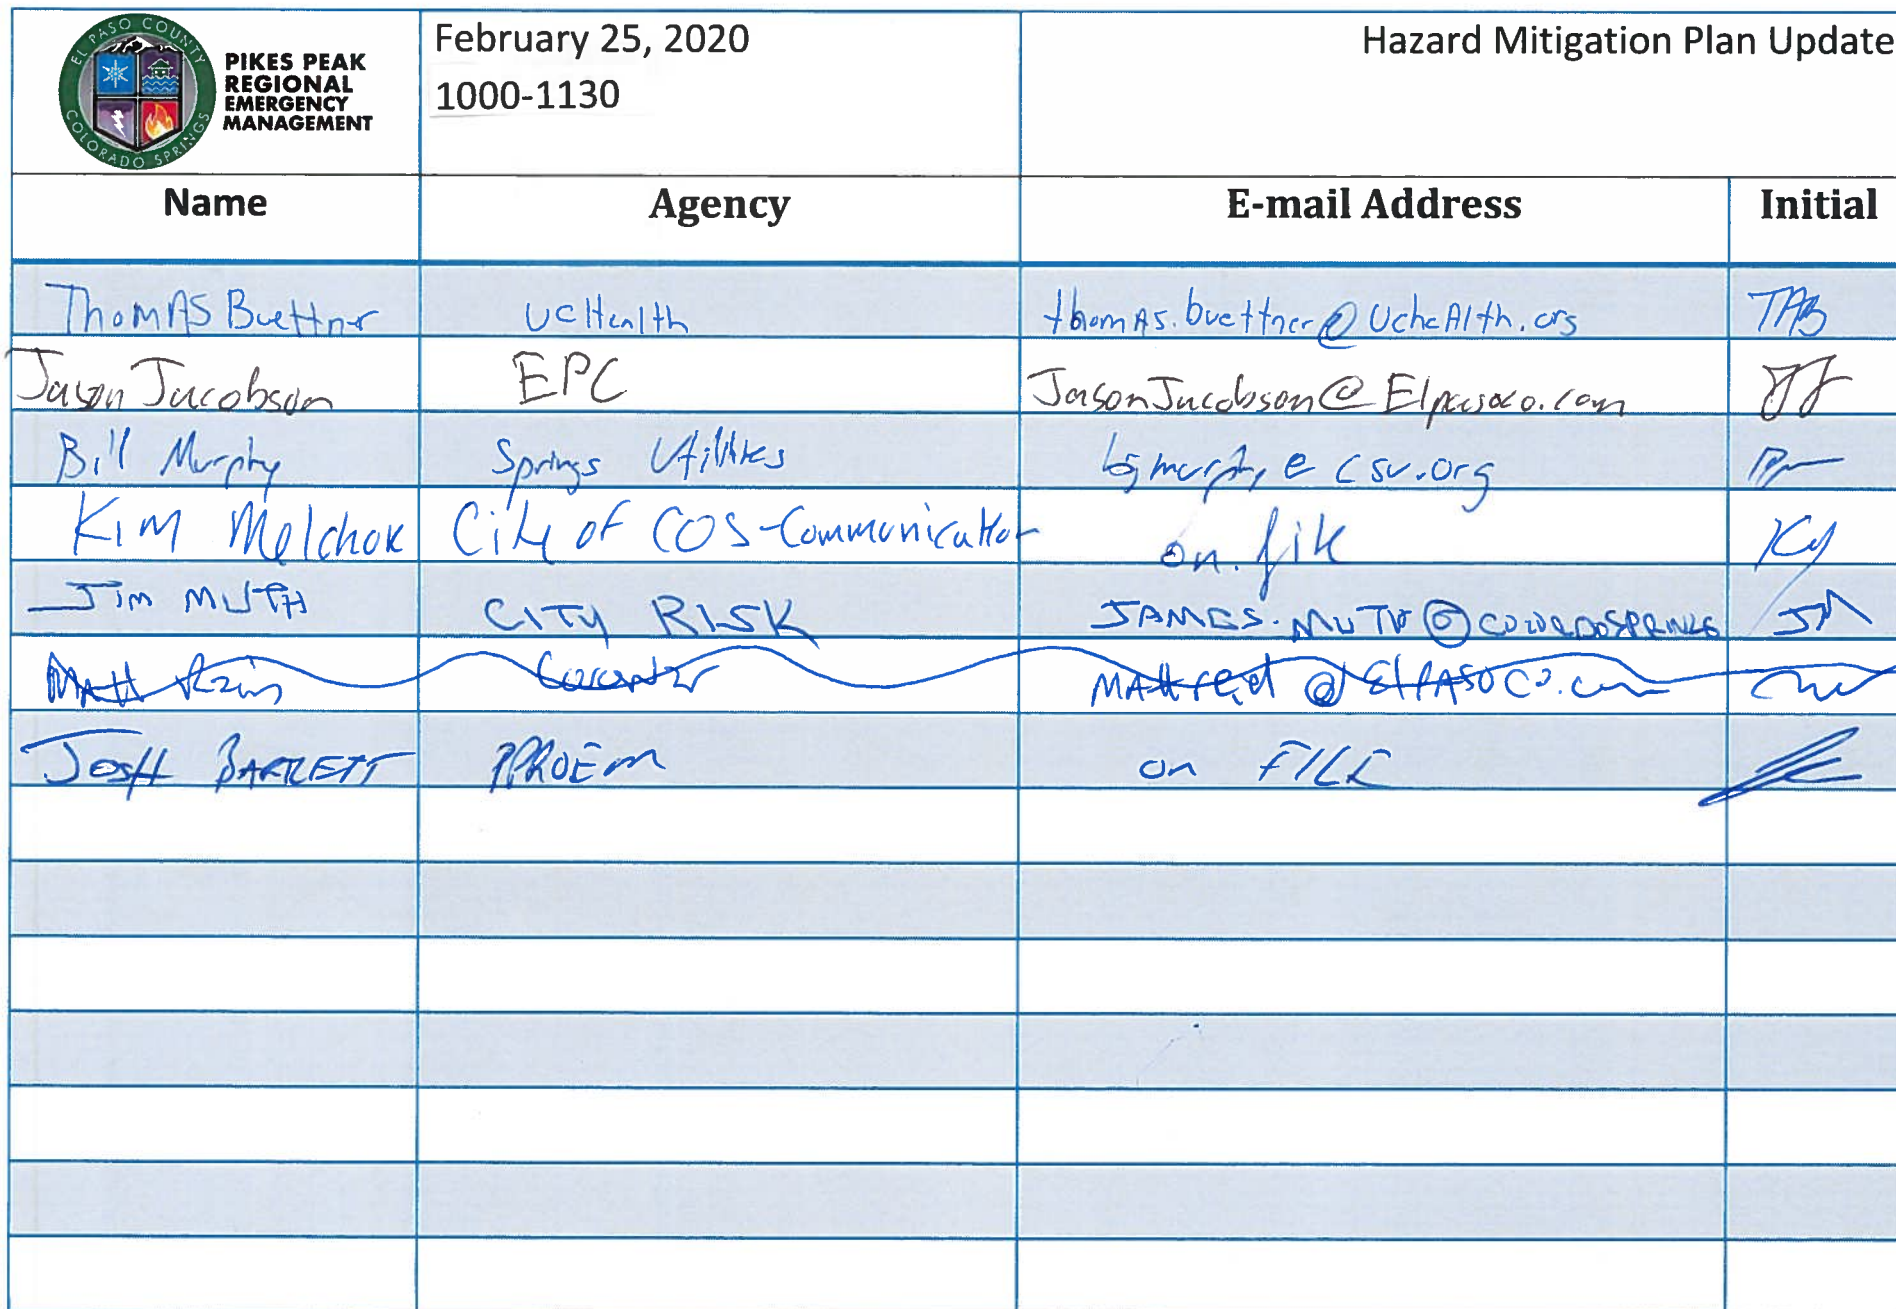 EL PASO COUNTY
COLORADO SPRINGS
PIKES PEAK
REGIONAL
EMERGENCY
MANAGEMENT
February 25, 2020
1000-1130
Hazard Mitigation Plan Update
Name Agency E-mail Address Initial
ThomAS Buettner UCHealth thomAs.buettner@UcheAlth.org TAB
Jason Jacobson EPC JasonJacobson@Elpasoco.com JJ
Bill Murphy Springs Utilities bjmurphy@csu.org
KIM Melchor City of COS-Communication on file
JIM MUTH CITY RISK JAMES.MUTH@COLORADOSPRINGS JM
MAtt MAttreid@ElPASOCo.com
JOSH BARTLETT PPROEM on FILE